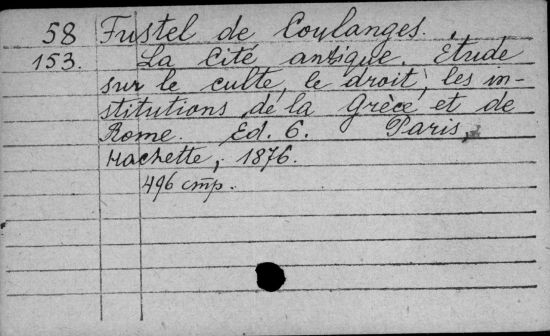 58 Fustel de Coulanges.
153. La Cité antique. Etude
sur le culte, le droit, les in-
stitutions de la Grèce et de
Rome. Ed. 6. Paris,
Hachette, 1876.
496 стр.